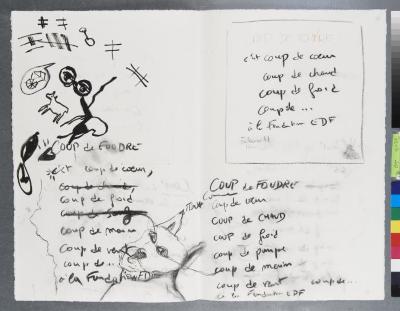 COUP de FOUDRE
c'est coup de cœur,
coup de chaud,
coup de froid
coup de
coup de main
coup de vent
coup de...
à la Fondation EDF
c'est coup de cœur
coup de chaud
coup de froid
coup de...
à la Fondation EDF
COUP de FOUDRE
coup de
coup de CHAUD
coup de froid
coup de pompe
coup de main
coup de vent coup de...
à la Fondation EDF